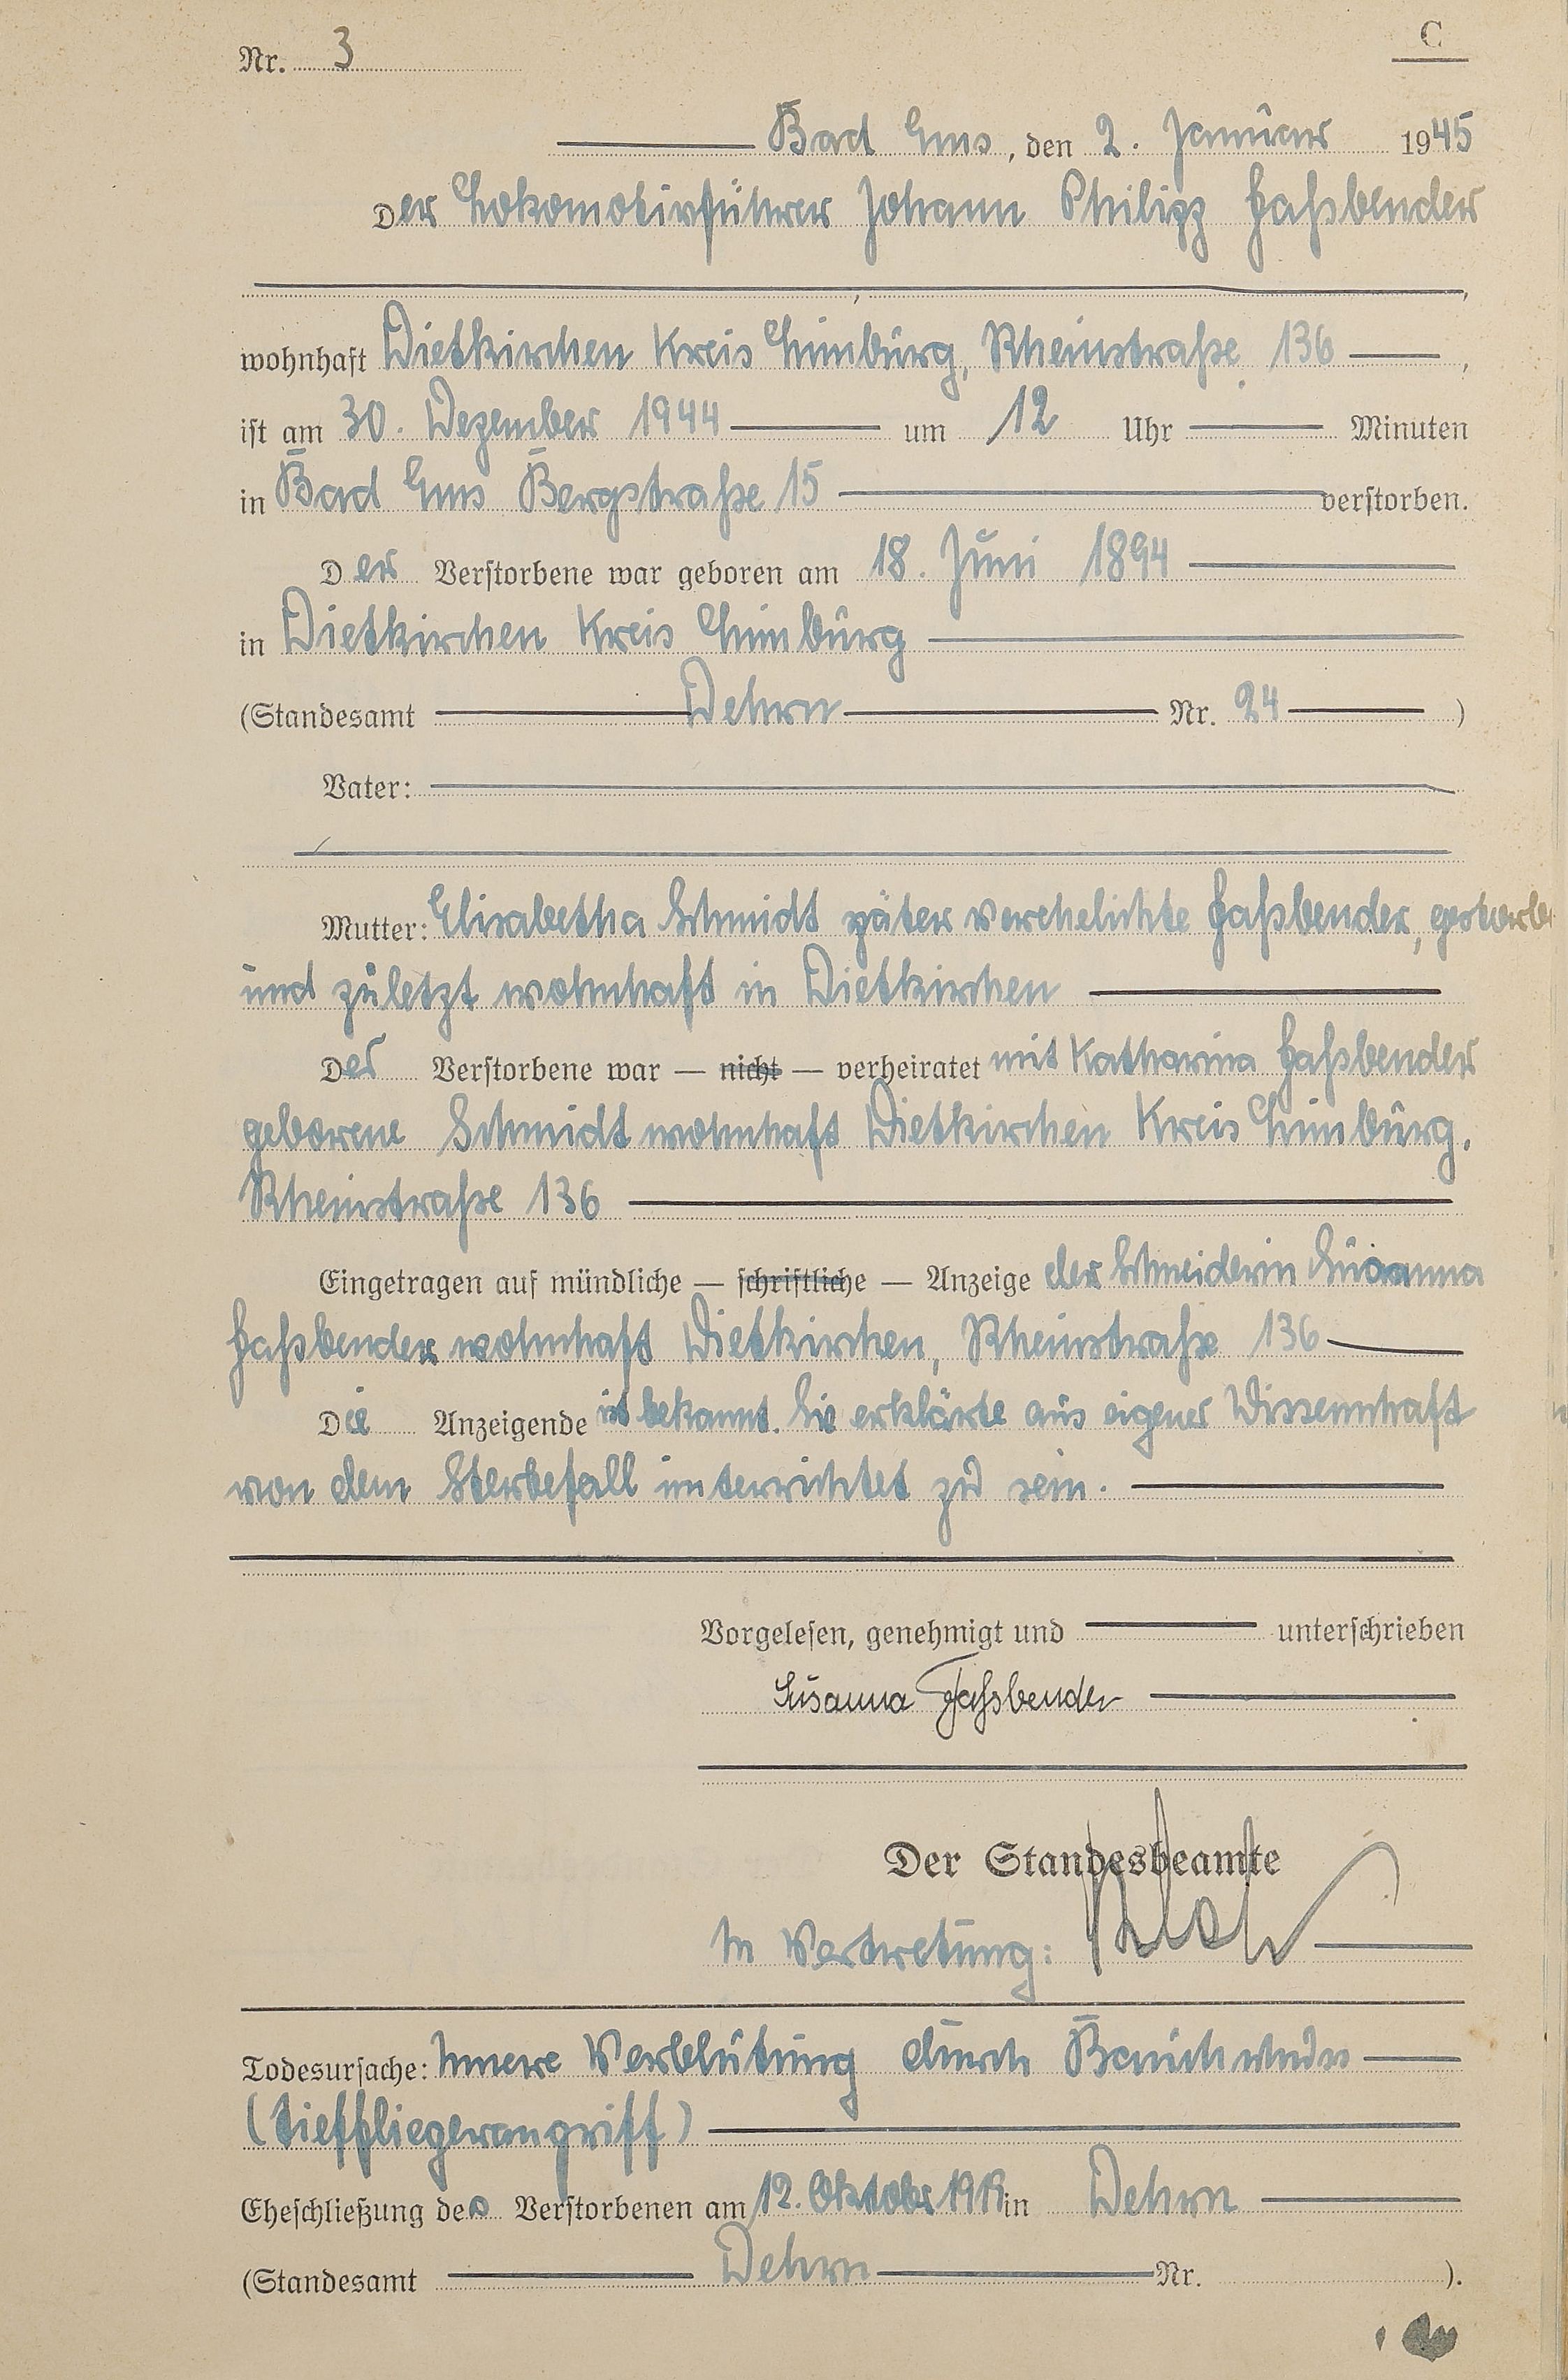 Nr. 3
C
Bad Ems, den 2. Januar 1945
Der Lokomotivführer Johann Philipp Faßbender
wohnhaft Dietkirchen Kreis Limburg, Rheinstraße 136,
ist am 30. Dezember 1944 um 12 Uhr Minuten
in Bad Ems Bergstraße 15 verstorben.
Der Verstorbene war geboren am 18. Juni 1894
in Dietkirchen Kreis Limburg
(Standesamt Dehrn Nr. 24)
Vater:
Mutter: Elisabetha Schmidt später verehelichte Faßbender, gestorbe
und zuletzt wohnhaft in Dietkirchen
Der Verstorbene war — nicht — verheiratet mit Katharina Faßbender
geborene Schmidt wohnhaft Dietkirchen Kreis Limburg,
Rheinstraße 136
Eingetragen auf mündliche — schriftliche — Anzeige der Schneiderin Susanna
Faßbender wohnhaft Dietkirchen, Rheinstraße 136
Die Anzeigende ist bekannt. Sie erklärte aus eigener Wissenschaft
von dem Sterbefall unterrichtet zu sein.
Vorgelesen, genehmigt und unterschrieben
Susanna Faßbender
Der Standesbeamte
In Vertretung:
Todesursache: Innere Verblutung durch Bauchschuss
(Tieffliegerangriff)
Eheschließung des Verstorbenen am 12. Oktober 1919 in Dehrn
(Standesamt Dehrn Nr. ).